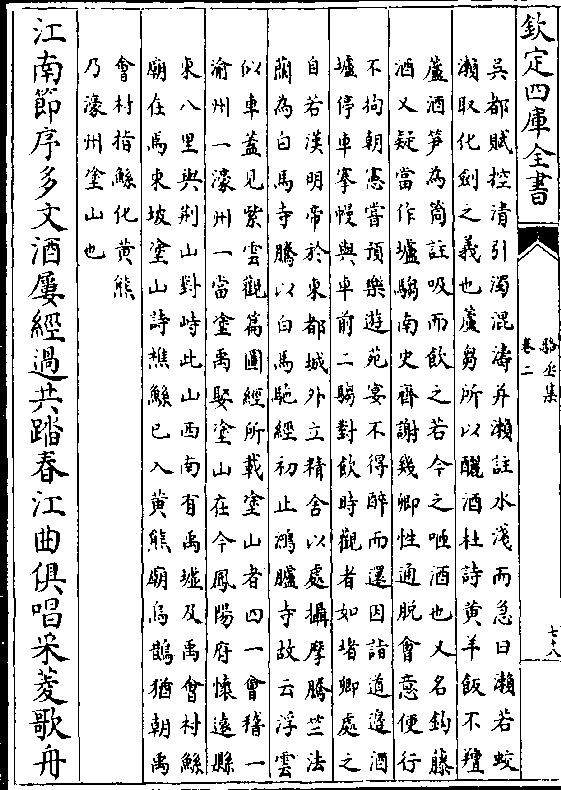 欽定四庫全書
吳都賦控清引濁混濤并瀨註水淺而急曰瀨若蛟
瀨取化劍之義也蘆芻所以釃酒杜詩黃羊飯不羶
蘆酒筍為筒註吸而飲之若今之咂酒也又名鈎藤
酒又疑當作壚騶南史齊謝幾卿性通脫會意便行
不拘朝憲嘗預樂遊苑宴不得醉而還因詣道邊酒
壚停車搴幔與卓前二騶對飲時觀者如堵卿處之
自若漢明帝於東都城外立精舍以處攝摩騰竺法
蘭為白馬寺騰以白馬馳經初止鴻臚寺故云浮雲
似車蓋見紫雲觀篇圖經所載塗山者四一會稽一
渝州一濠州一當塗禹娶塗山在今鳳陽府懷遠縣
東八里與荆山對峙此山西南有禹墟及禹會村鯀
廟在焉東坡塗山詩樵鯀已入黃熊廟烏鵲猶朝禹
會村指鯀化黃熊
乃濠州塗山也
江南節序多文酒屢經過共踏春江曲俱唱采菱歌舟
駱丞集
卷二
七十八